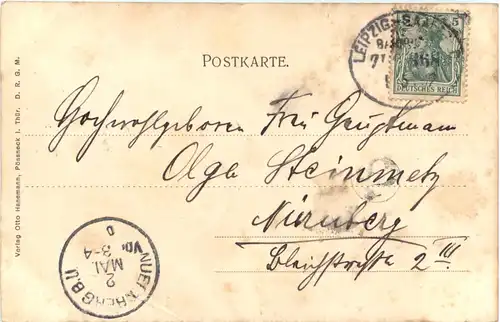 POSTKARTE.
LEIPZIG-SA
BAHNPOST
368
5
DEUTSCHES REICH
Hochwohlgeboren Frau Hauptmann
Olga Steinmetz
Nürnberg
Bleichstraße 2 III
NUERNBERG B.II
2
MAI
3-4
Verlag Otto Hanemann, Pössneck i. Thür. D. R. G. M.